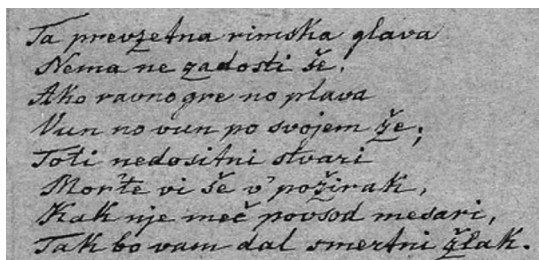 Ta prevzetna rimska glava
Nema ne zadosti še.
Ako ravno gre no plava
Vun no vun po svojem že;
Toti nedositni stvari
Mor'te vi še v' požirak,
Kak nje meč povsod mesari,
Tak bo vam dal smertni žlak.